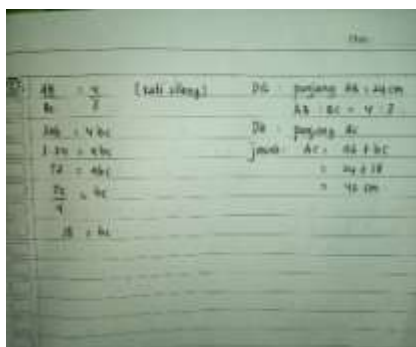 AB / BC = 4 / 3 (kali silang)
3AB = 4BC
3.24 = 4BC
72 = 4BC
72 / 4 = BC
18 = BC
Dik : panjang AB = 24 cm
AB : BC = 4 : 3
Dit : panjang AC
jawab : AC = AB + BC
= 24 + 18
= 42 cm